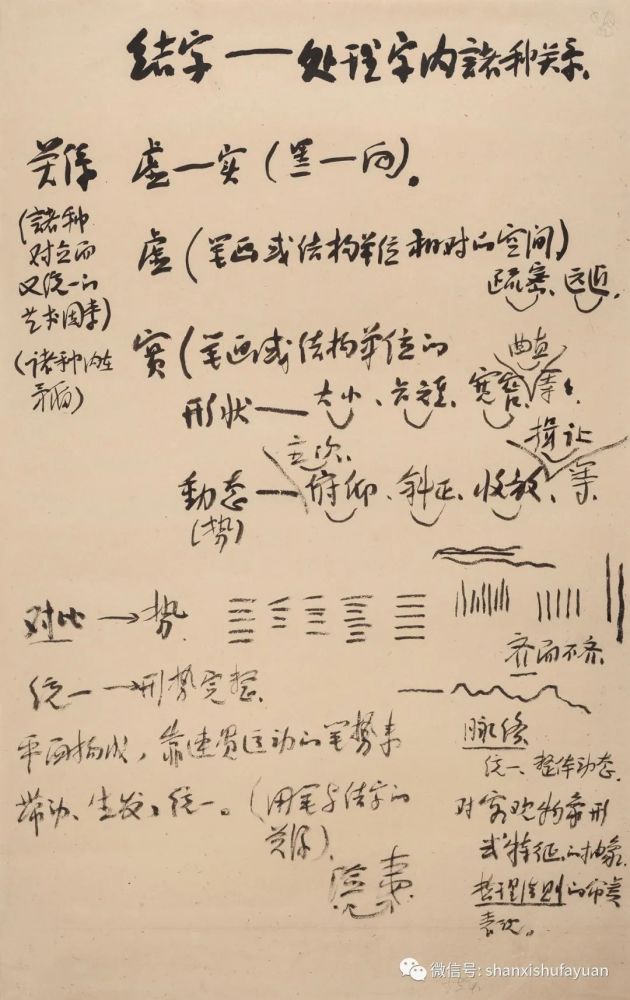 结字——处理字内諸种关系
关係 虚—实(黑—白)。
(諸种
对立而
又统一的
艺术因素)
(诸种内在
矛盾)
虚(笔画或结构单位相对的空间)
疏密、远近.
實(笔画或结构单位的
曲直
形狀——大小、长短、宽窄、等等.
揖让
主次.
動态——俯仰、斜正、收放、等.
(势)
对比→势.
齐而不齐.
统一→形势完整.
平面构成,靠连贯运动的笔势来
带动、生发、统一。(用笔与结字的
关係)
脉络
统一、整体动态.
对客观物象形
式特征的抽象.
哲理法则的
表现。
微信号: shanxishufayuan